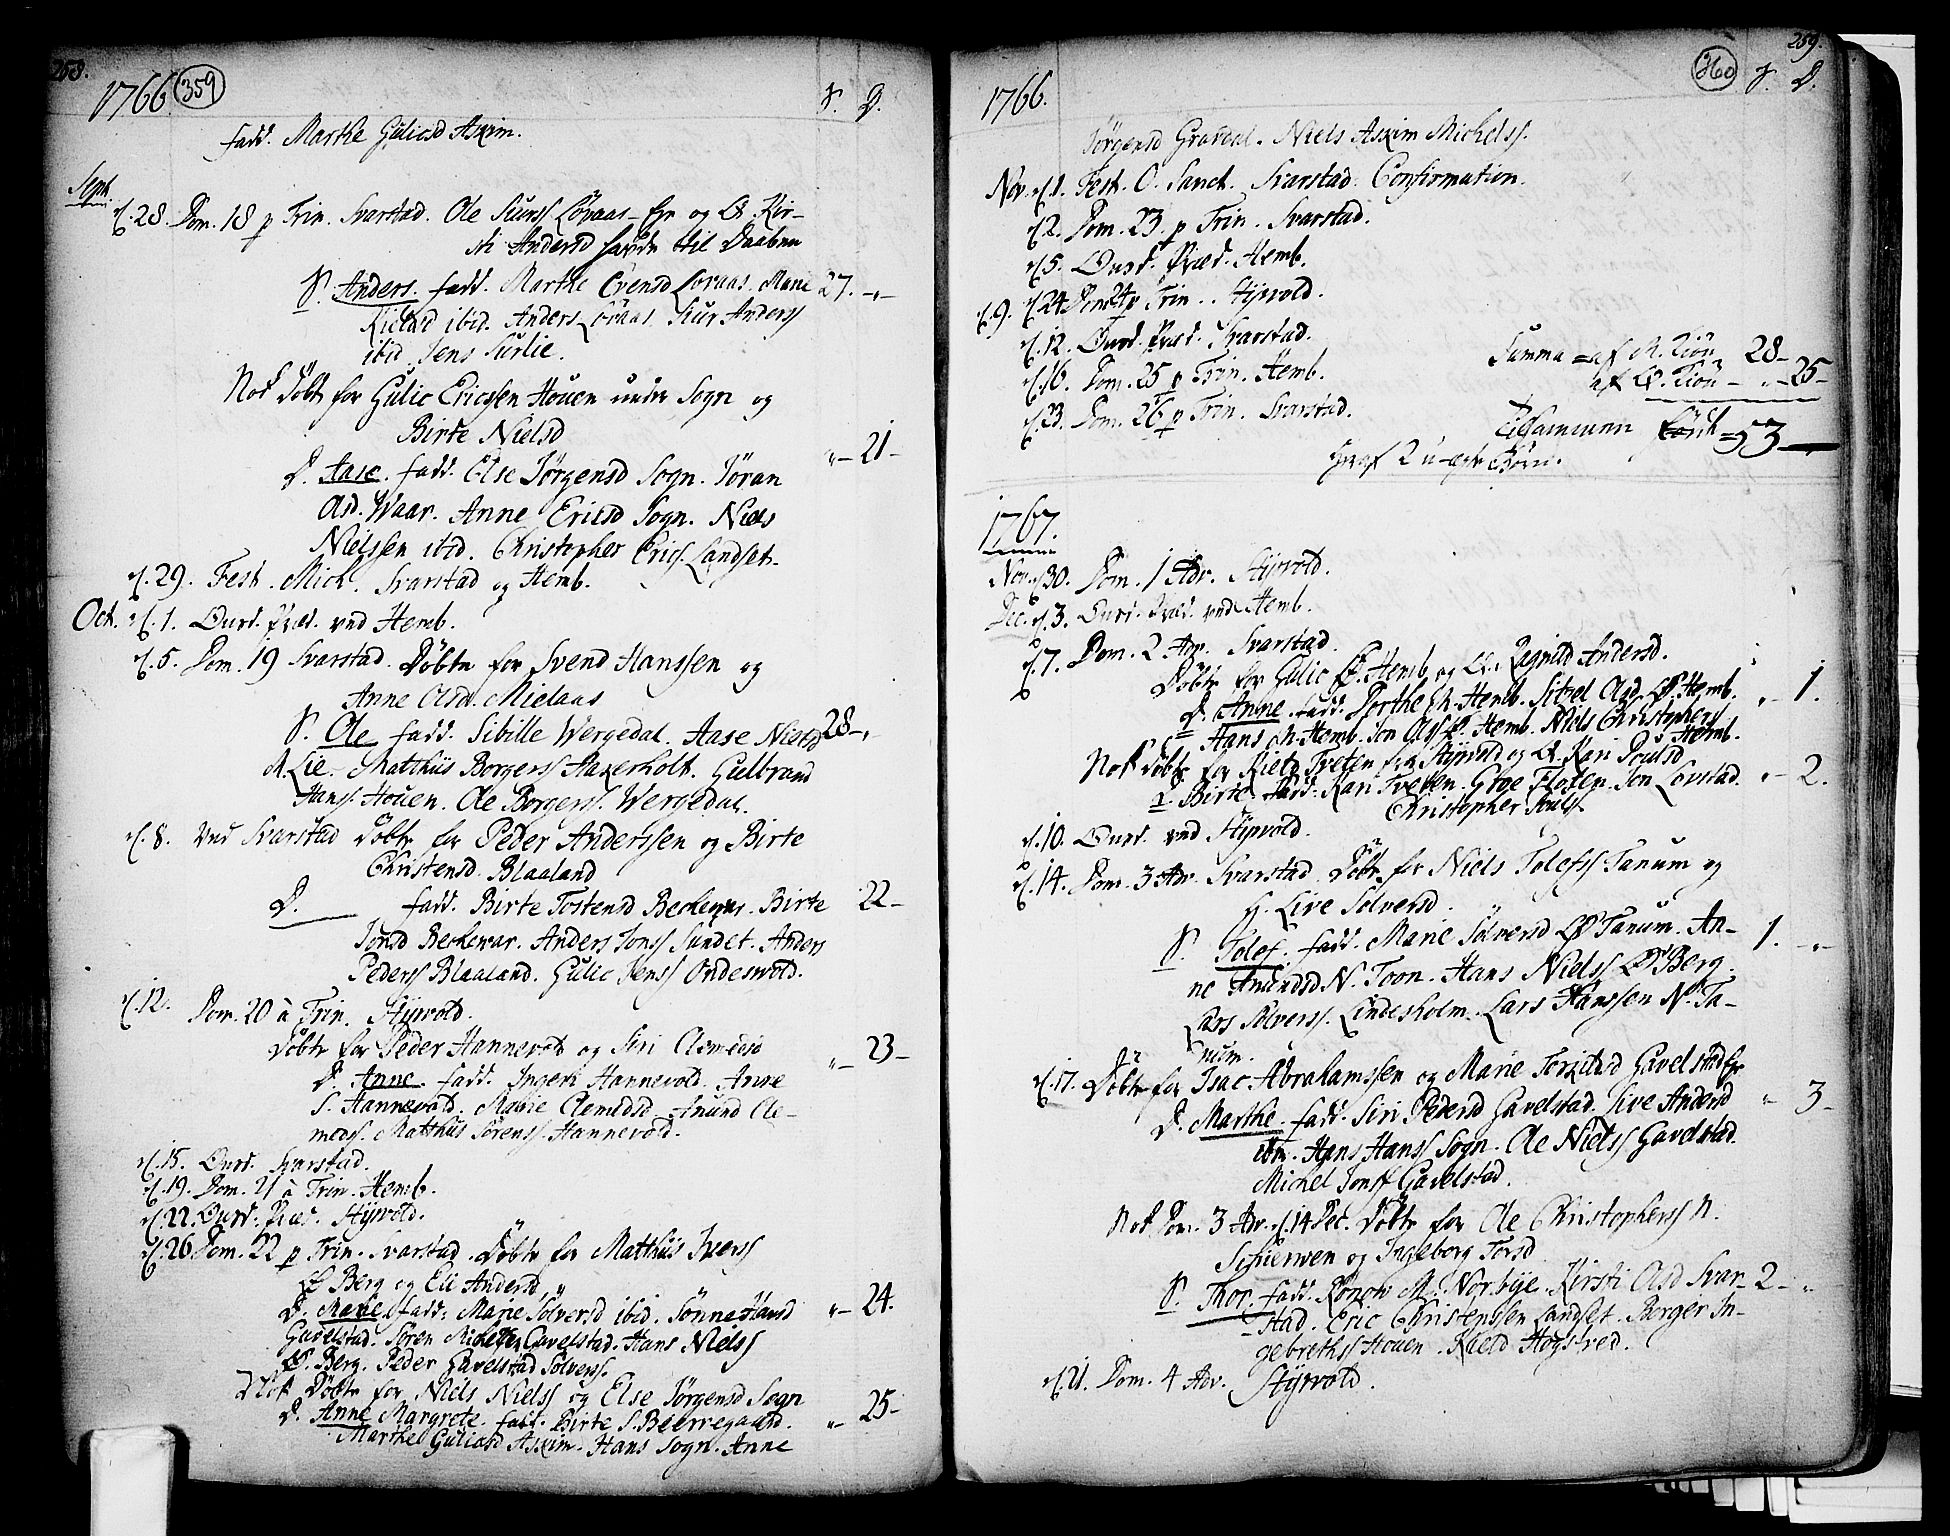 258.
1766. 359
S. D.
Fadd. Marthe Guliesd Askim.
Sept.
d. 28. Dom. 18 p Trin. Svarstad. Ole Siurss Lövaas Egr og Q. Kir-
sti Andersd havde til Daaben
S. Anders. Fadd. Marthe Evensd Lovaas. Marie 27. -„-
Kieldsd ibid. Anders Lövaas. Siur Anderss
ibid. Jens Surlie.
Nok Döbt for Gulic Ericssen Houen under Sogn og
Birte Nielsd
D. Aase. Fadd. Else Jörgensd Sogn. Jöran „- 21-
Olsd. Waar. Anne Ericsd Sogn. Niels
Nielssen ibid. Christopher Erics. Landset.
d. 29. Fest. Mich. Svarstad og Hemb.
Oct. d. 1. Onsd. Præd. ved Hemb.
d. 5. Dom. 19 Svarstad. Döbte for Svend Hanssen og
Anne Olsd. Mielaas
S. Ole Fadd. Sibille Wergedal. Aase Nielsd 28-„
M. Lie. Matthiis Borgerss Haxerholt. Gulbrand
Hanss. Houen. Ole Borgerss. Wergedal.
d. 8. Ved Svarstad Döbte for Peder Anderssen og Birte
Christensd Blaaland
D. Fadd. Birte Tostensd Beckevar. Birte 22-
Jonsd Beckevar. Anders Jonss Sundet. Anders
Pederss Blaaland. Gulic Jenss Ondesvold.
d. 12. Dom. 20 à Trin. Styrvold.
Döbte for Peder Hannevold og Siri Clemedsd
D. Anne. Fadd. Ingeri Hannevold. Anne „- 23-
S. Hannevold. Marie Clemedsd. Anund Cle-
medss. Matthiis Sörenss. Hannevold.
d. 15. Onsd. Svarstad.
d. 19. Dom. 21 à Trin. Hemb.
d. 22. Onsd. Præd. Styrvold.
d. 26 Dom. 22 p Trin. Svarstad. Döbte for Matthiis Iverss
Ö Berg og Eli Andersd
D. Marie. Fadd. Marie Sölversd ibid. Sönnev „- 24.
Gavelstad. Sören Gavelstad. Hans Nielss
Ö. Berg. Peder Gavelstad Sölverss.
Nok Döbte for Niels Nielss og Else Jörgensd Sogn
D. Anne Margrete. Fadd. Birte S. Bierregaard. „- 25-
Marthe Guliesd Askim. Hans Sogn. Anne
259.
1766. 360 S. D.
Jörgensd Gravdal. Niels Askim Michelss.
Nov. d. 1. Fest. O. Sanct. Svarstad. Confirmation.
d. 2. Dom. 23. p Trin. Svarstad.
d. 5. Onsd. Præd. Hemb.
d. 9. Dom 24 p Trin. Styrvold.
d. 12. Onsd. Præd. Svarstad.
d. 16. Dom. 25 p Trin. Hemb.
d. 23. Dom. 26 p Trin. Svarstad.
Summa af M. Kiön 28-
af Q. Kiön - „- 25-
Tilsammen 53
heraf 2 u-egte Börn.
1767.
Nov. d. 30. Dom. 1 Adv. Styrvold.
Dec. d. 3. Onsd. Præd. ved Hemb.
d. 7. Dom. 2 Adv. Svarstad.
Döbte for Gulic Ö. Hemb og Q. Ragnild Andersd.
D. Anne. Fadd. Dorthe M. Hemb. Sitzel Olsd. Ö. Hemb. „- 1.
Hans M. Hemb. Jon Olss Ö. Hemb. Niels Christopherss
Hemb.
Nok döbte for Kield Tveten fra Styrvold og Q. Kari Poulsd
D. Birte. Fadd. Kari Tveten. Groe Floten. Jon Lovstad. „- 2.
Christopher Pouls.
d. 10. Onsd. ved Styrvold.
d. 14. Dom. 3 Adv. Svarstad. Döbte for Niels Tolefss Tanum og
H. Live Sölversd.
S. Tolef. Fadd. Marie Sölversd Ö Tanum. An- 1. -„
ne Anundsd N. Toon. Hans Nielss Ö Berg.
Lars Sölverss. Lindesholm. Lars Hanssen N. Ta-
num.
d. 17. Döbte for Isac Abrahamssen og Marie Torkildsd Gavelstad Egr
D. Marthe. Fadd. Siri Pedersd Gavelstad. Live Andersd „ 3-
ibm. Hans Hanss Sogn. Ole Nielss Gavelstad.
Michel Jonss Gavelstad.
Nok Dom. 3 Adv. d. 14 Dec. Döbte for Ole Christopherss N.
Schierven og Ingeborg Torsd
S. Thor. Fadd. Rönow M. Norbye. Kirsti Olsd Svar- 2- „
stad. Eric Christenssen Landset. Borger In-
gebrethss Houen. Kield Hogstved.
d. 21. Dom. 4 Adv. Styrvold.